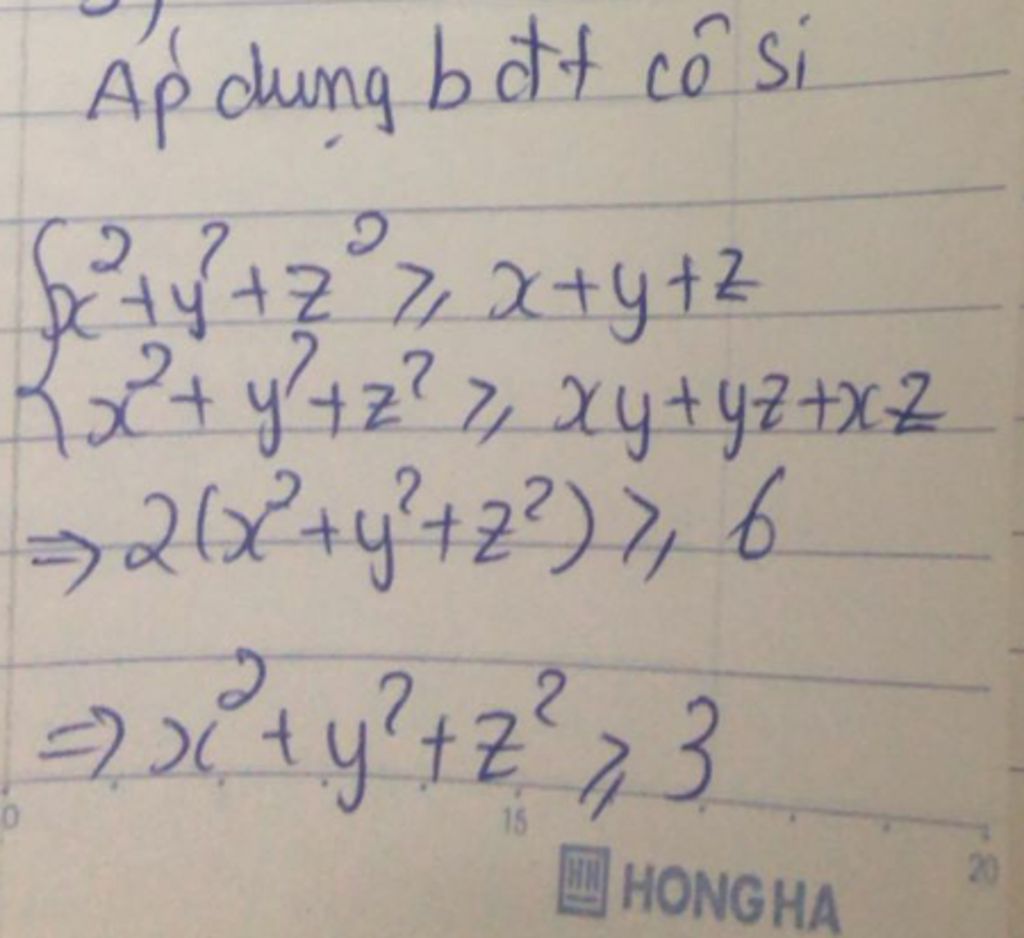 Áp dụng bđt cô si
x²+y²+z² ⩾ x+y+z
x²+y²+z² ⩾ xy+yz+xz
⇒ 2(x²+y²+z²) ⩾ 6
⇒ x²+y²+z² ⩾ 3
0 15 20
HH HONG HA